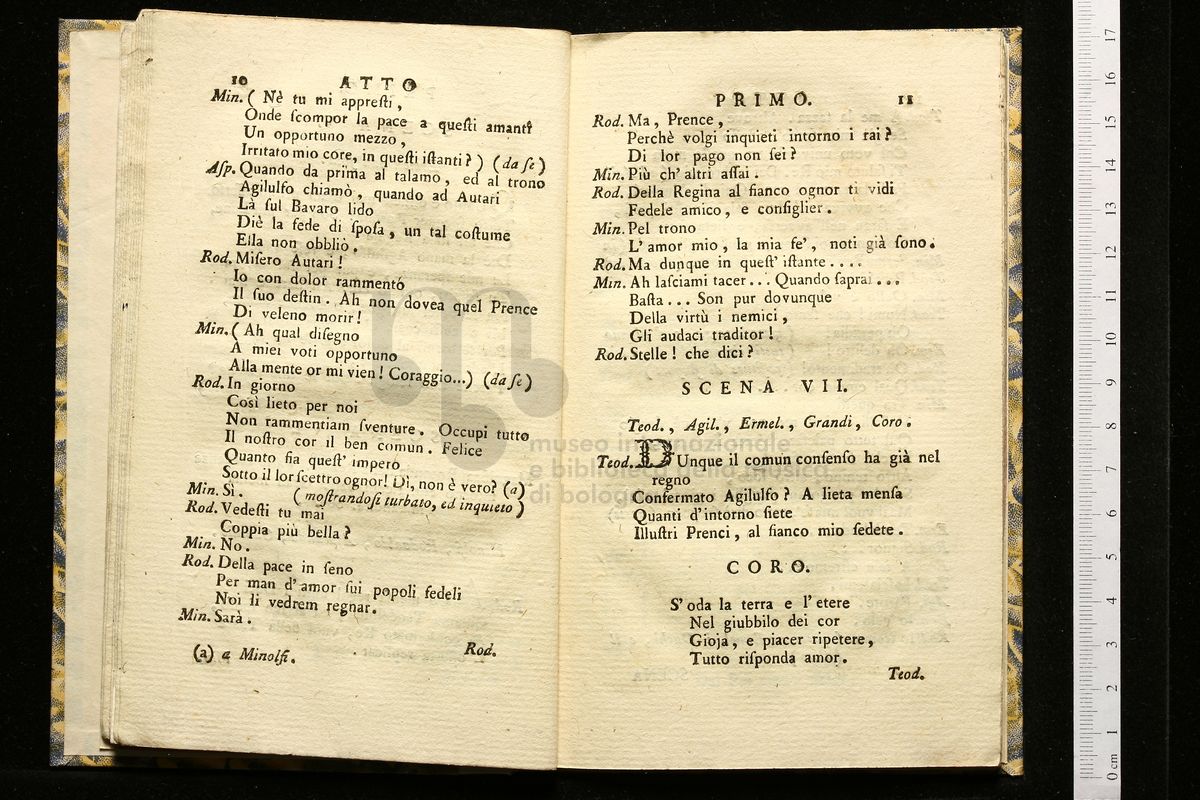 10 ATTO
Min. ( Nè tu mi appreſti,
Onde ſcompor la pace a queſti amanti
Un opportuno mezzo,
Irritato mio core, in queſti iſtanti? ) (da ſe)
Aſp. Quando da prima al talamo, ed al trono
Agilulfo chiamò, quando ad Autari
Là ſul Bavaro lido
Diè la fede di ſpoſa, un tal coſtume
Ella non obbliò.
Rod. Miſero Autari!
Io con dolor rammentó
Il ſuo deſtin. Ah non dovea quel Prence
Di veleno morir!
Min. ( Ah qual diſegno
A miei voti opportuno
Alla mente or mi vien! Coraggio...) (da ſe)
Rod. In giorno
Così lieto per noi
Non rammentiam ſventure. Occupi tutto
Il noſtro cor il ben comun. Felice
Quanto fia queſt' impero
Sotto il lor ſcettro ognor! Dì, non è vero? (a)
Min. Sì. ( moſtrandoſi turbato, ed inquieto )
Rod. Vedeſti tu mai
Coppia più bella?
Min. No.
Rod. Della pace in ſeno
Per man d' amor ſui popoli fedeli
Noi li vedrem regnar.
Min. Sarà.
(a) a Minolfi.
Rod.
PRIMO. 11
Rod. Ma, Prence,
Perchè volgi inquieti intorno i rai?
Di lor pago non ſei?
Min. Più ch' altri aſſai.
Rod. Della Regina al fianco ognor ti vidi
Fedele amico, e conſiglier.
Min. Pel trono
L' amor mio, la mia fe', noti già ſono.
Rod. Ma dunque in queſt' iſtante....
Min. Ah laſciami tacer... Quando ſaprai...
Baſta... Son pur dovunque
Della virtù i nemici,
Gli audaci traditor!
Rod. Stelle! che dici?
SCENA VII.
Teod., Agil., Ermel., Grandi, Coro.
Teod. DUnque il comun conſenſo ha già nel
regno
Confermato Agilulfo? A lieta menſa
Quanti d' intorno ſiete
Illuſtri Prenci, al fianco mio ſedete.
CORO.
S' oda la terra e l' etere
Nel giubbilo dei cor
Gioja, e piacer ripetere,
Tutto riſponda amor.
Teod.
museo internazionale
e biblioteca della musica
di bologna
17
16
15
14
13
12
11
10
9
8
7
6
5
4
3
2
1
0 cm